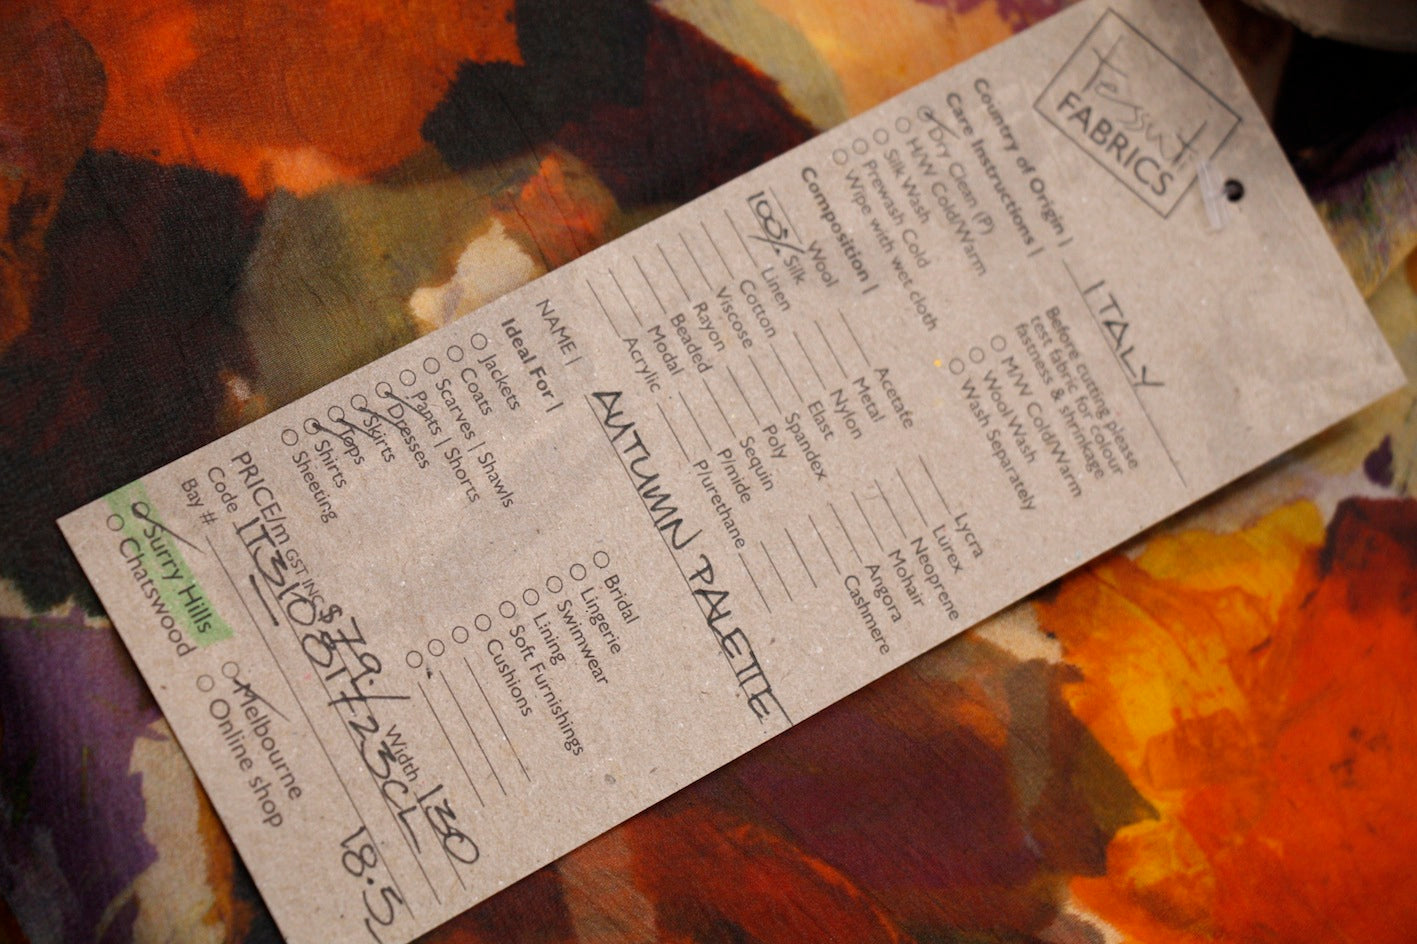 Tessuti
FABRICS
Country of Origin | ITALY
Care Instructions |
Dry Clean (P)
H/W Cold/Warm
Silk Wash
Prewash Cold
Wipe with wet cloth
Before cutting please
test fabric for colour
fastness & shrinkage
M/W Cold/Warm
Wool Wash
Wash Separately
Composition |
Wool
100% Silk
Linen
Cotton
Viscose
Rayon
Beaded
Modal
Acrylic
Acetate
Metal
Nylon
Elast
Spandex
Poly
Sequin
P/mide
P/urethane
Lycra
Lurex
Neoprene
Mohair
Angora
Cashmere
NAME | AUTUMN PALETTE
Ideal For |
Jackets
Coats
Scarves | Shawls
Pants | Shorts
Dresses
Skirts
Tops
Shirts
Sheeting
Bridal
Lingerie
Swimwear
Lining
Soft Furnishings
Cushions
PRICE/m GST INC $79./ Width 130
Code
Bay # 18.5
Surry Hills
Chatswood
Melbourne
Online shop